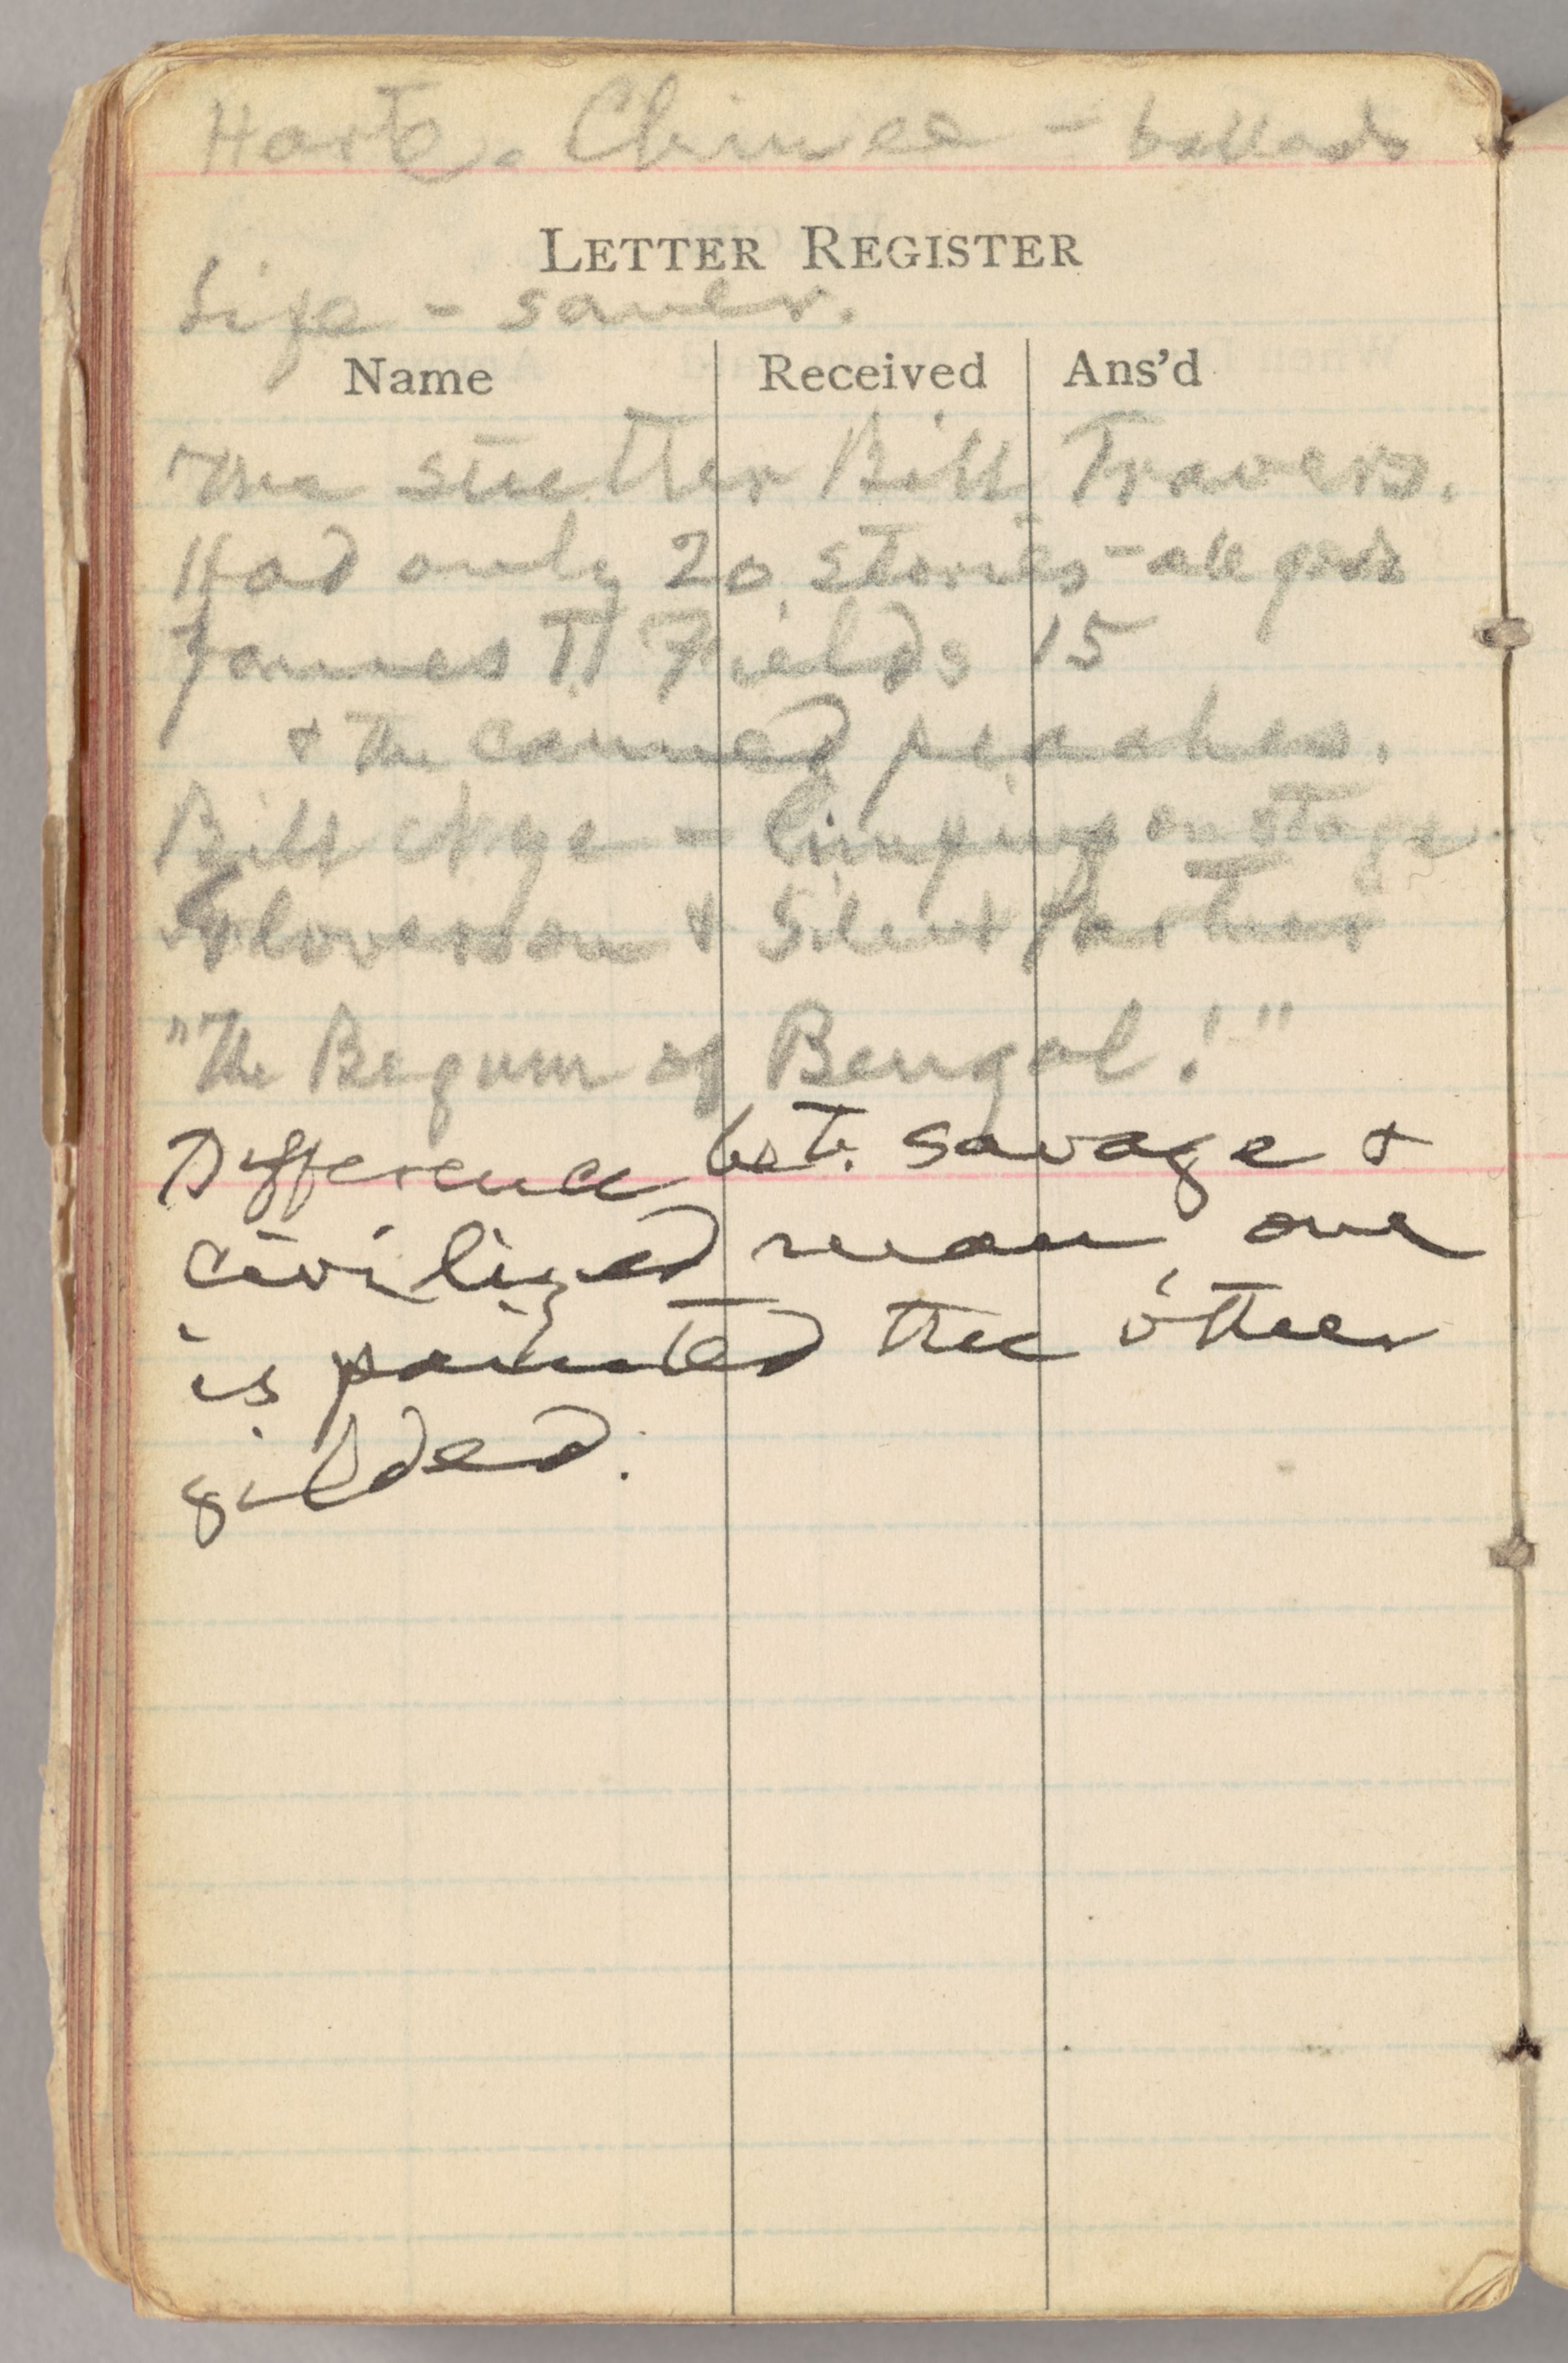 Harte. Chinee - ballads
LETTER REGISTER
Life - saver.
Name Received Ans'd
The stutter Bill Travers.
Had only 20 stories - all good
James T Fields 15
& the canned peaches.
Bill Nye - limping on stage
Gloverson & Silent partner
"The Begum of Bengal!"
Difference bet. savage &
civilized man one
is painted the other
gilded.